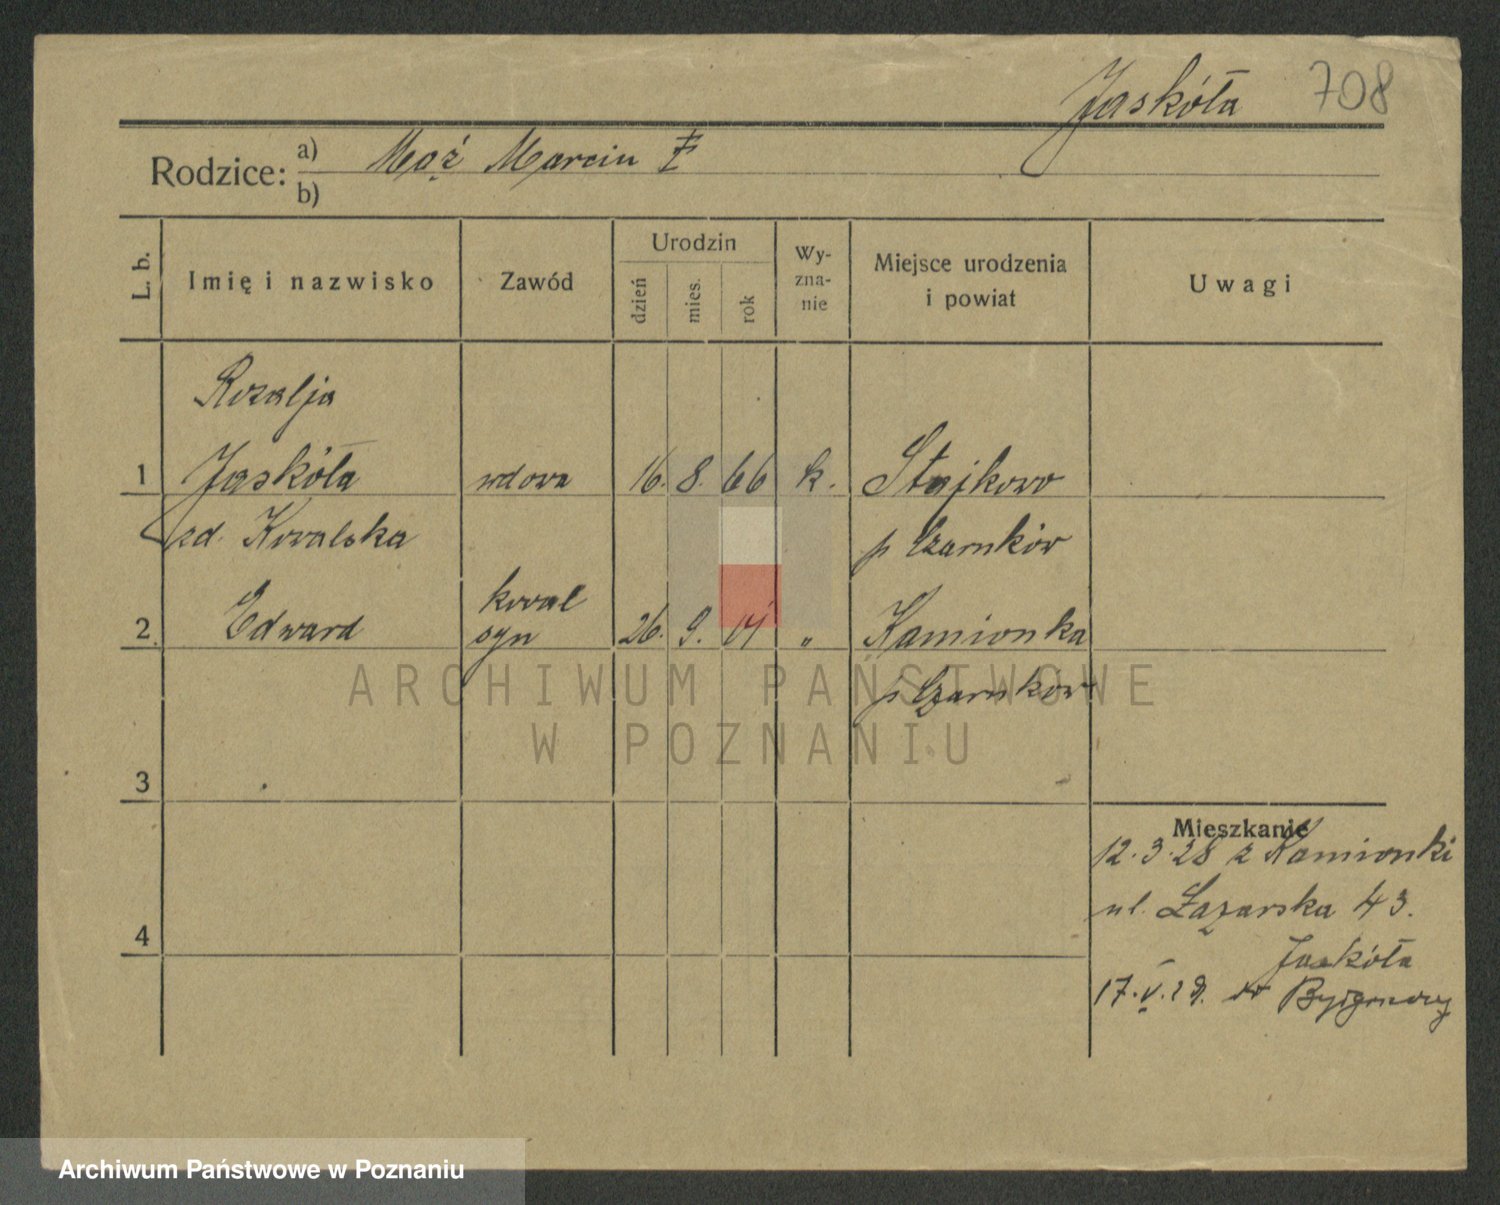 Jaskóła 708
Rodzice: a) Mąż Marcin
b)
L. b.
Imię i nazwisko
Zawód
Urodzin
dzień
mies.
rok
Wy-
zna-
nie
Miejsce urodzenia
i powiat
Uwagi
Rozalja
1 Jaskóła wdowa 16. 8. 66 k. Stajkowo
zd. Kowalska p Czarnków
kowal
2 Edward syn 26. 9. 04 " Kamionka
p Czarnków
3
4
Mieszkanie
12.3.28 z Kamionki
ul. Łazarska 43.
Jaskóła
17.V.29. do Bydgoszczy
ARCHIWUM PAŃSTWOWE
W POZNANIU
Archiwum Państwowe w Poznaniu